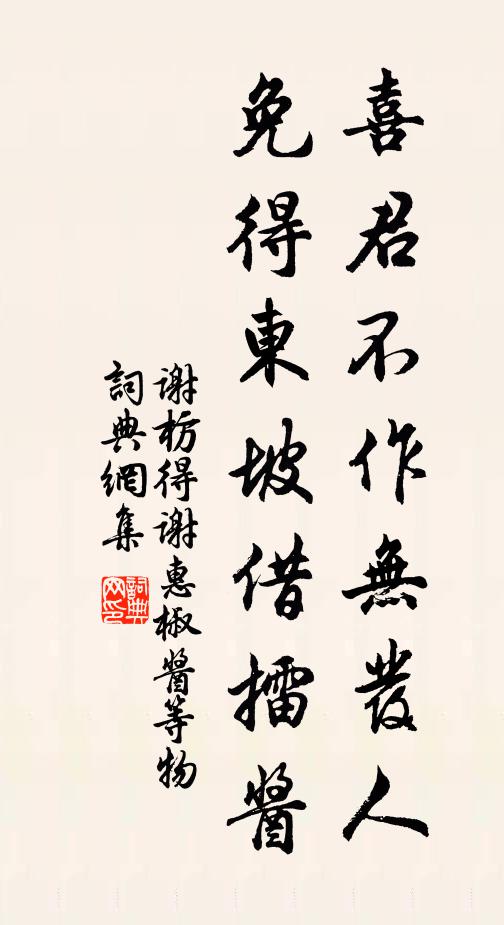 喜君不作無發人
免得東坡借擂醬
谢枋得谢惠椒醬等物
詞典網集
詞典网印